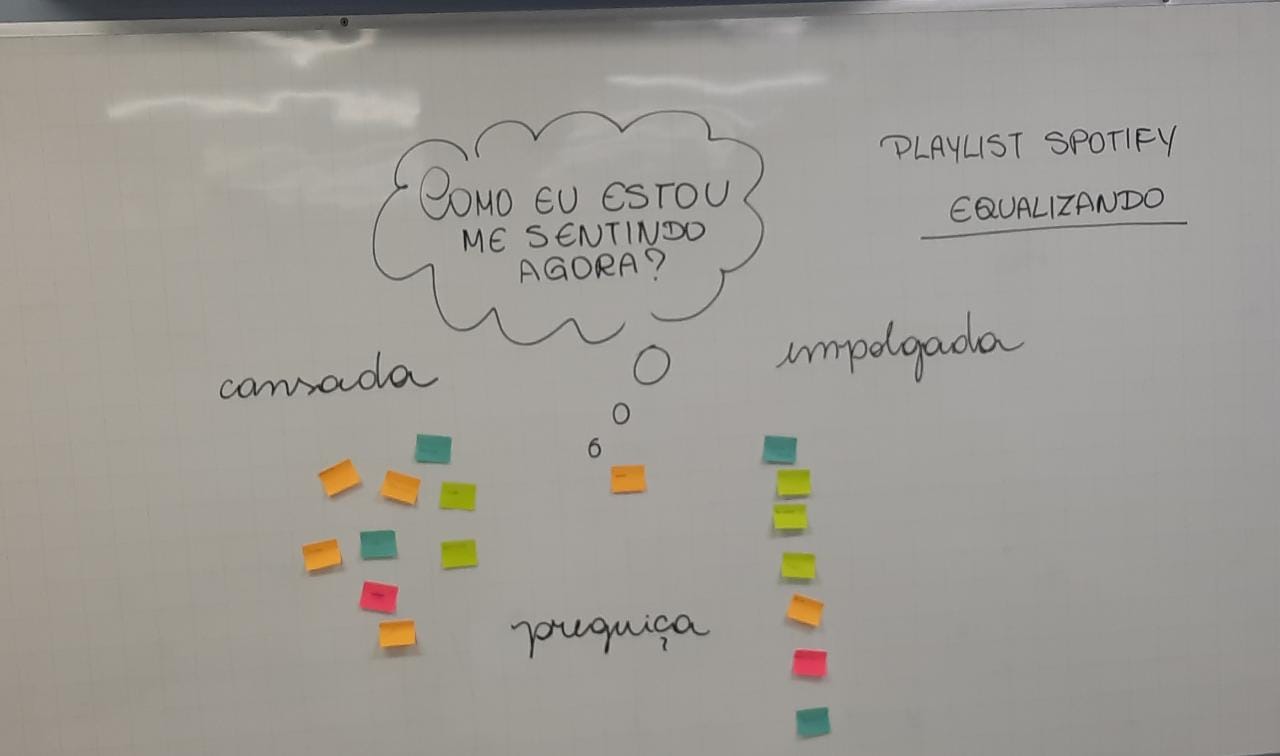 COMO EU ESTOU
ME SENTINDO
AGORA?
PLAYLIST SPOTIFY
EQUALIZANDO
cansada
empolgada
preguiça